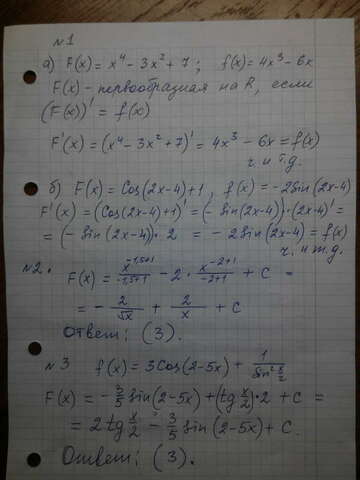 №1
а) F(x) = x⁴ - 3x² + 7 ; f(x) = 4x³ - 6x
F(x) - первообразная на R, если
(F(x))' = f(x)
F'(x) = (x⁴ - 3x² + 7)' = 4x³ - 6x = f(x)
ч. и т.д.
б) F(x) = Cos(2x-4)+1, f(x) = -2sin(2x-4)
F'(x) = (Cos(2x-4)+1)' = (-sin(2x-4))·(2x-4)' =
= (-sin(2x-4))·2 = -2sin(2x-4) = f(x)
ч. и т.д.
№2. F(x) = x^(-1,5+1)/(-1,5+1) - 2 · x^(-2+1)/(-2+1) + C =
= - 2/√x + 2/x + C
Ответ: (3).
№3 f(x) = 3Cos(2-5x) + 1/sin² x/2
F(x) = - 3/5 sin(2-5x) + (tg x/2)·2 + C =
= 2tg x/2 - 3/5 sin(2-5x) + C.
Ответ: (3).